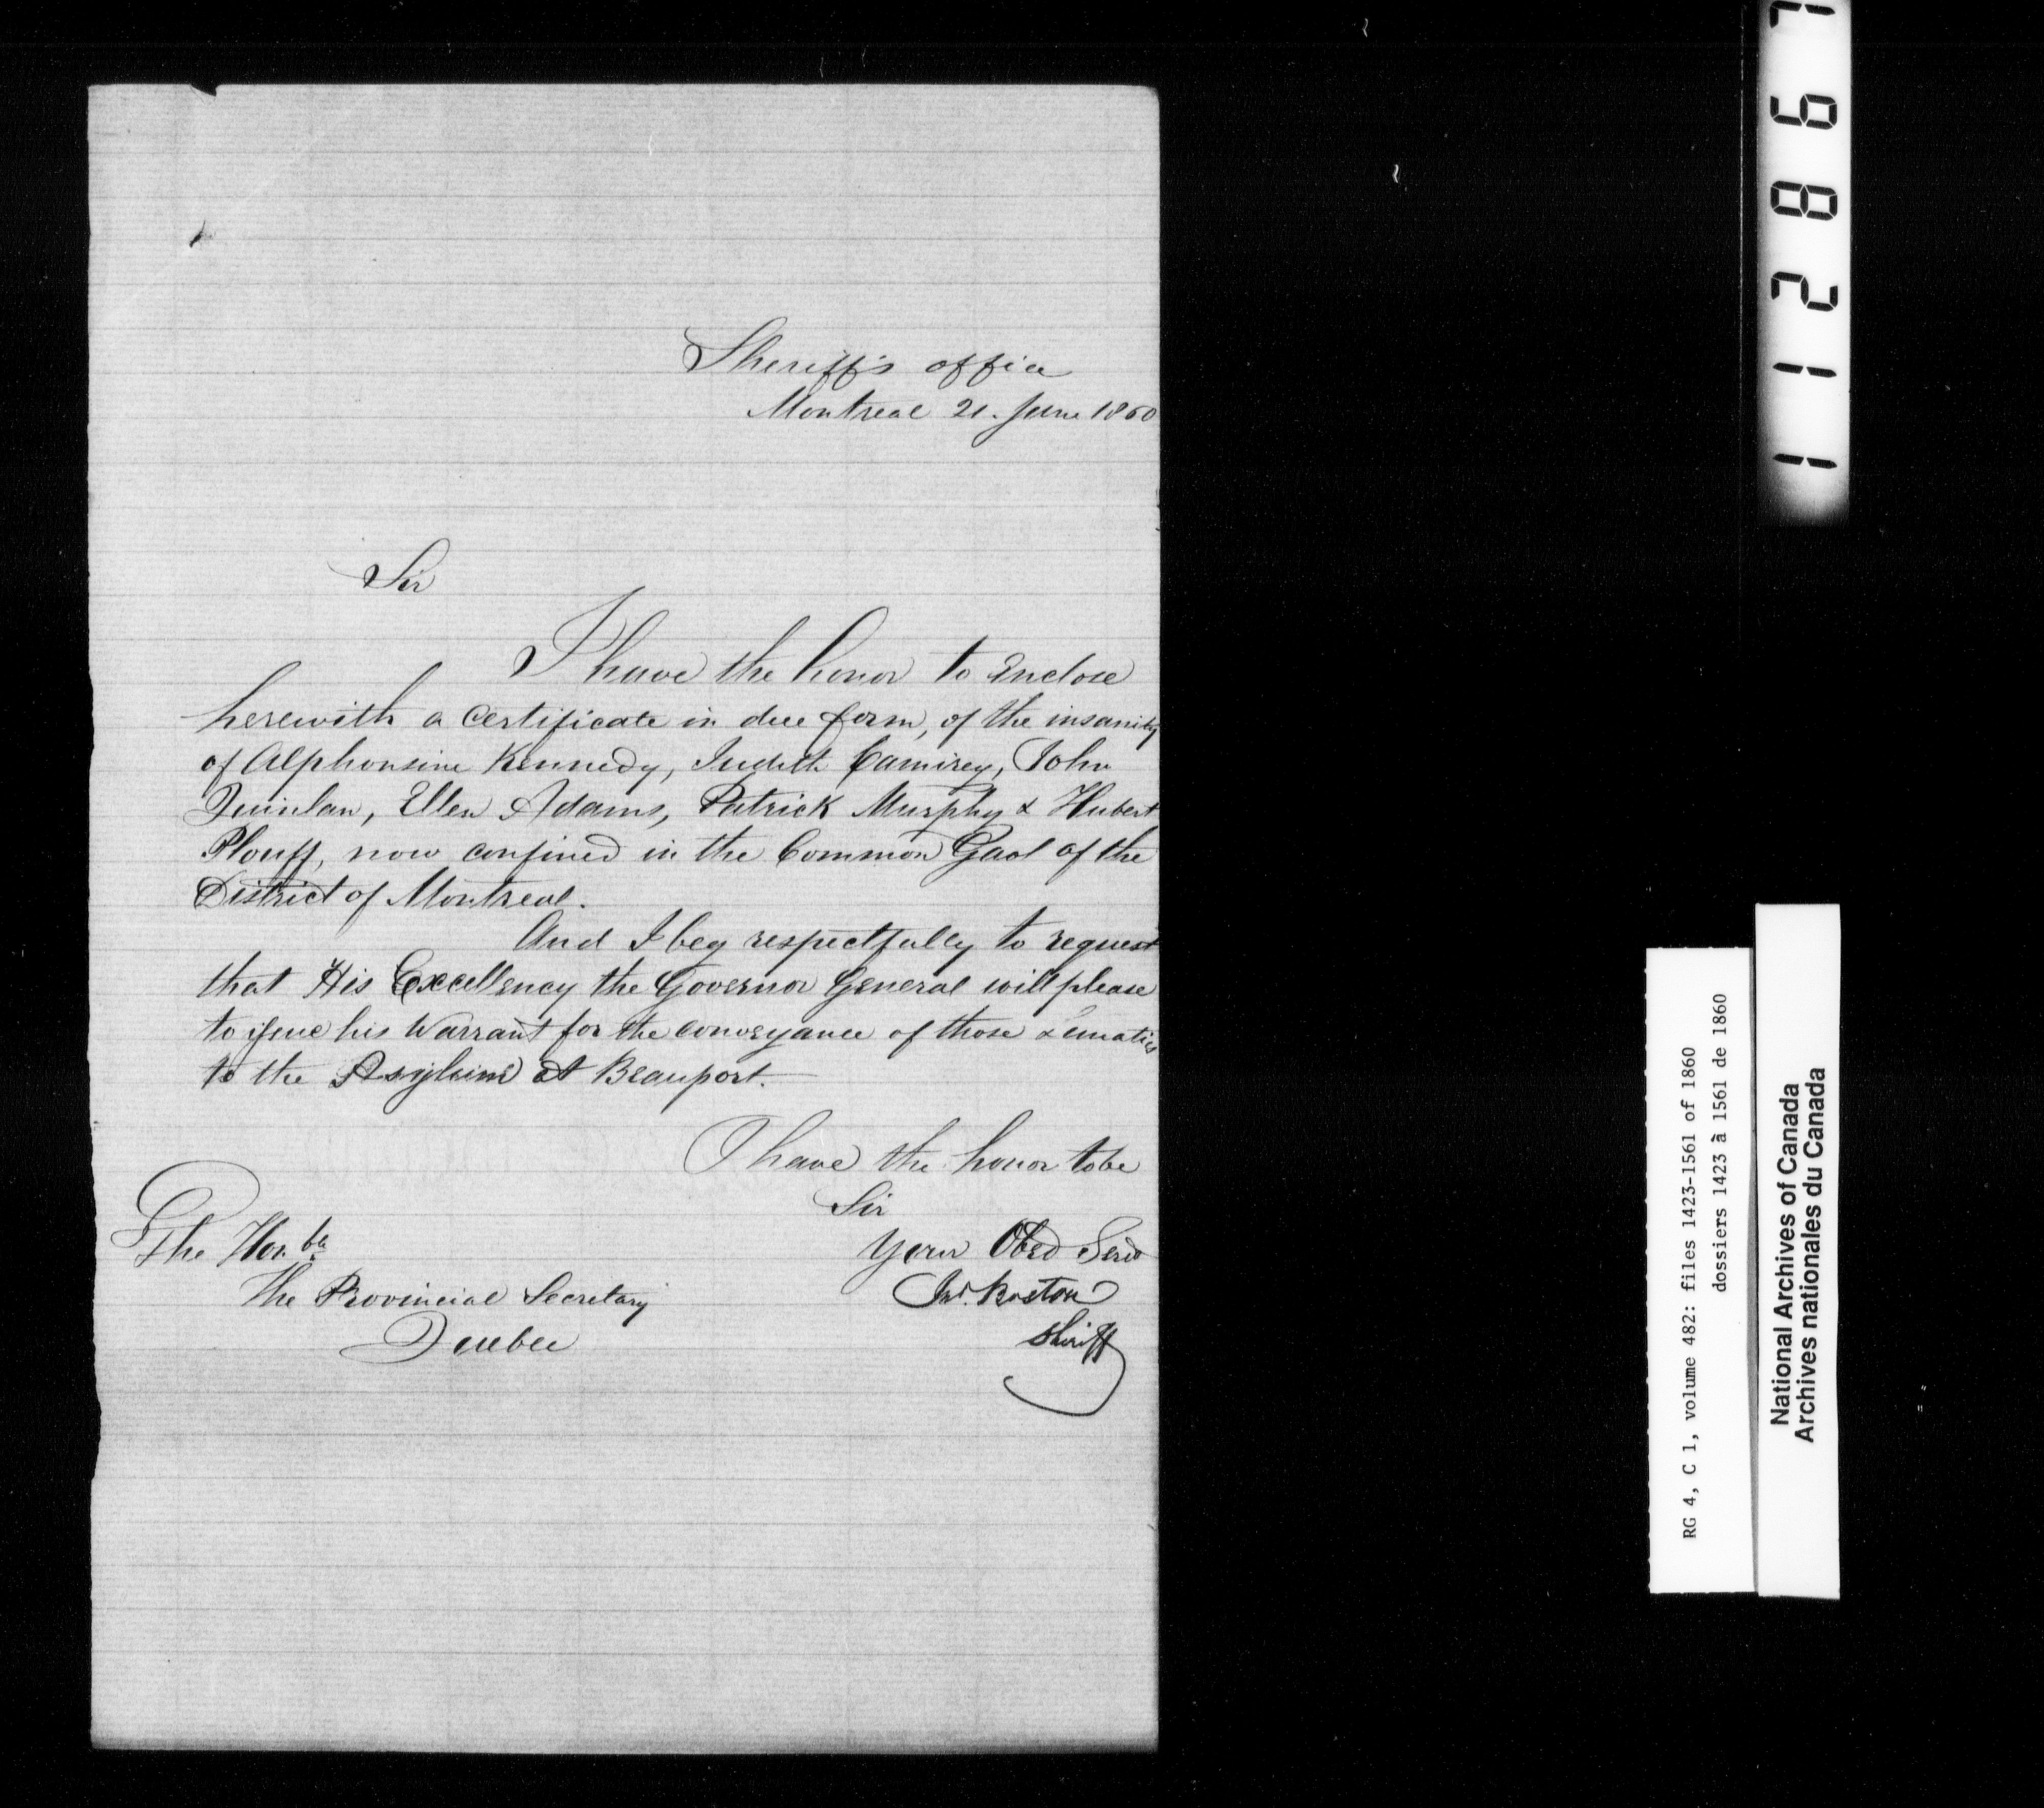 Sheriff's office
Montreal 21. June 1860
Sir
I have the honor to Enclose
herewith a Certificate in due form, of the insanity
of Alphonsine Kennedy, Judith Camirey, John
Quinlan, Ellen Adams, Patrick Murphy & Hubert
Plouff, now confined in the Common Gaol of the
District of Montreal.
And I beg respectfully to request
that His Excellency the Governor General will please
to issue his Warrant for the conveyance of those Lunatics
to the Asylum at Beauport.
I have the honor to be
Sir
Your Obed Servt
Jno. Boston
Sheriff
The Honble
The Provincial Secretary
Quebec
112867
RG 4, C 1, volume 482: files 1423-1561 of 1860
dossiers 1423 à 1561 de 1860
National Archives of Canada
Archives nationales du Canada